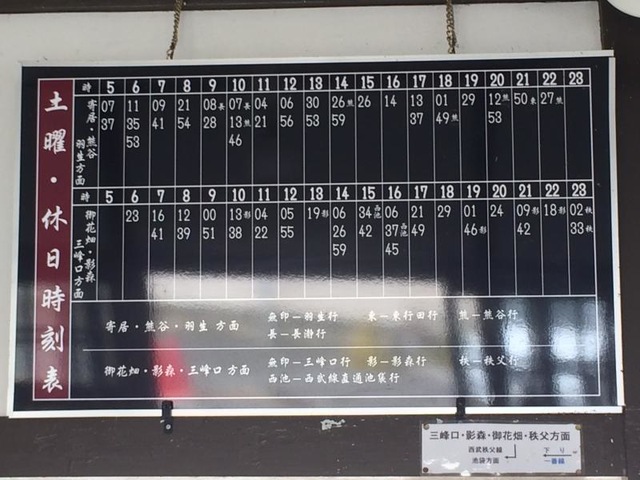 土曜・休日時刻表
時 5 6 7 8 9 10 11 12 13 14 15 16 17 18 19 20 21 22 23
寄居・熊谷
羽生方面
07 11 09 21 08長 07長 04 06 30 26熊 26 14 13 01 29 12熊 50東 27熊
37 35 41 54 28 13熊 21 56 53 59 37 49熊 53
53 46
時 5 6 7 8 9 10 11 12 13 14 15 16 17 18 19 20 21 22 23
御花畑・影森
三峰口方面
23 16 12 00 13影 04 05 19影 06 34西池 06 21 29 01 24 09影 18影 02秩
41 39 51 38 22 55 26 42 37西池 49 46影 42 33秩
59 45
寄居・熊谷・羽生 方面
無印ー羽生行 東ー東行田行 熊ー熊谷行
長ー長瀞行
御花畑・影森・三峰口 方面
無印ー三峰口行 影ー影森行 秩ー秩父行
西池ー西武線直通池袋行
三峰口・影森・御花畑・秩父方面
西武秩父線
池袋方面
下り
一番線